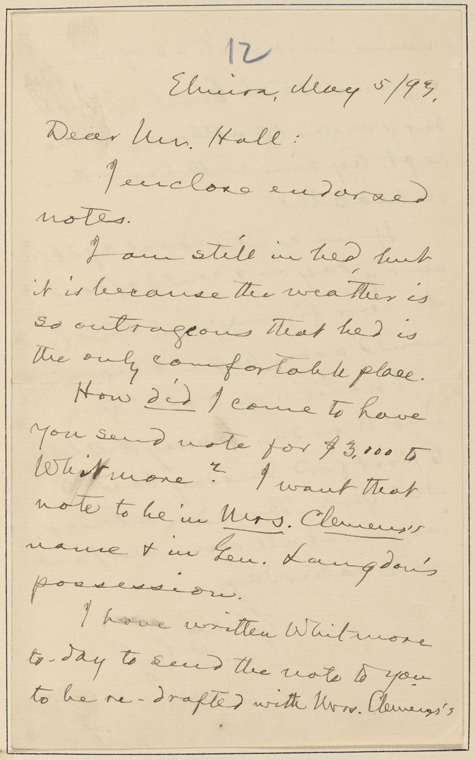 12
Elmira, May 5/93.
Dear Mr. Hall:
I enclose endorsed
notes.
I am still in bed, but
it is because the weather is
so outrageous that bed is
the only comfortable place.
How did I come to have
you send note for $3,000 to
Whitmore? I want that
note to be in Mrs. Clemens's
name & in Gen. Langdon's
possession.
I have written Whitmore
to-day to send the note to you
to be re-drafted with Mrs. Clemens's